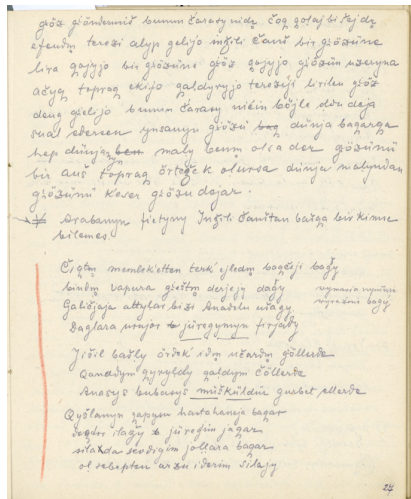 gözö gönderiniz bunun čarasy nidę. čoq qolaj bišejdę
efendim terezi alyp gelijo ingili čanli bir gözüne
lira qojyjo bir gözüne göz qojyjo gözün uzeryna
ačyq topraq ekijo qaldyryjo tereziji liriler göz
deng gelijo bunun čarasy ničin böjle oldu deja
sual edersen ynsanyn gözü dünja baqarqa
hep dünjanyn maly benim olča der gözünü
bir auš topraq örteček olursa dünja malyndan
gözünü keser gözü dojar.
Arabanyn fietyny Ingili Čanitan bašqa bir kimse
bilemes.
Čiqtim memlekętten terk ejledim baqčeji bağy
bindim vapura gečtim derjejy dağy
Galičjaja attylar bizi Anadolu ušağy
Daglara urujor jüregymyn firjady
Ješil bašly ördek idim učardym göllerde
Qanadym qyryldy qaldym čöllerde
Anasys bubasys müšküldür gurbet ellerde
Qyšlanyn qapysu hastahaneja baqar
jüregim jaqar
silada sevdigim jollara baqar
ol sebepten arzu iderim silajy
24